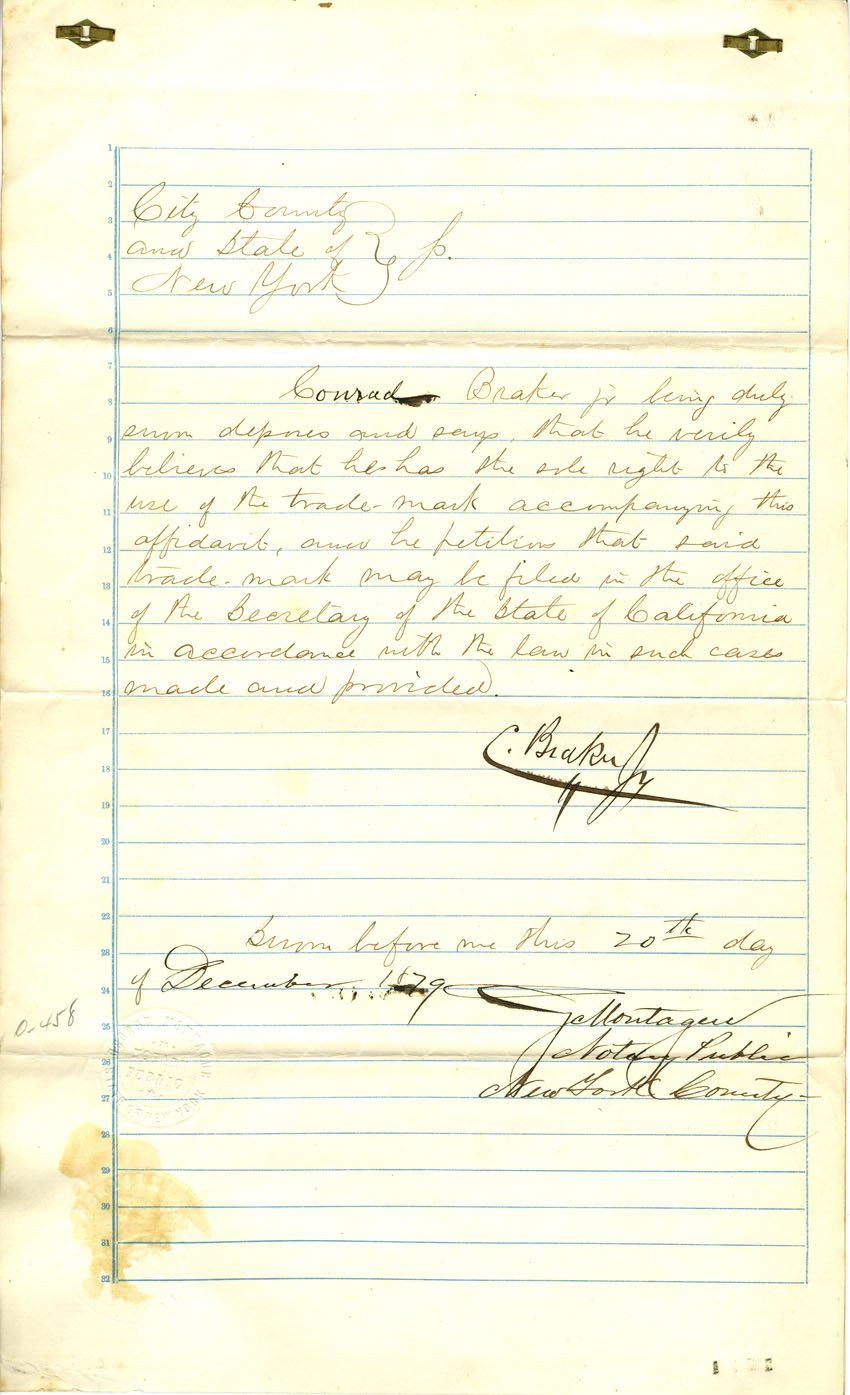 City County
and State of } ss.
New York
Conrad Braker jr being duly
sworn deposes and says, that he verily
believes that he has the sole right to the
use of the trade-mark accompanying this
affidavit, and he petitions that said
trade-mark may be filed in the office
of the Secretary of the State of California
in accordance with the law in such cases
made and provided.
C. Braker Jr
Sworn before me this 20th day
of December 1879
Montague
Notary Public
New York County
0-458
1
2
3
4
5
6
7
8
9
10
11
12
13
14
15
16
17
18
19
20
21
22
23
24
25
26
27
28
29
30
31
32